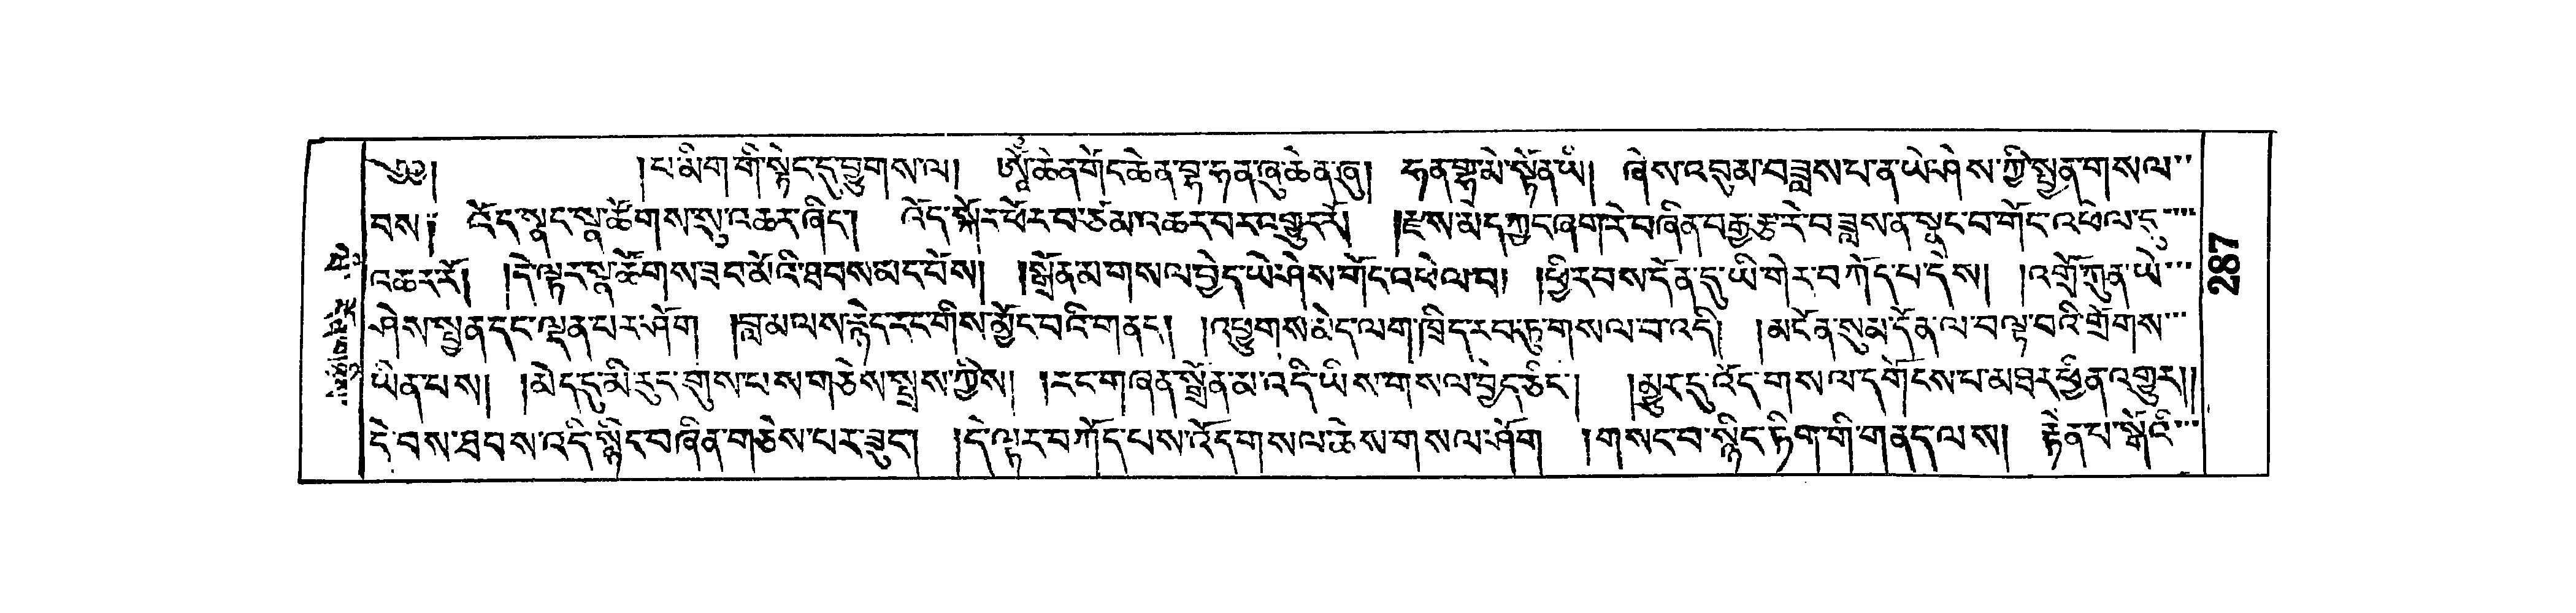 ༄༅། །པ་མིག་གི་སྟེང་དུ་བྱུགས་ལ། ཨོཾ་ཆེན་གོང་ཆེན་བྷ་ཧན་ཞུ་ཆེན་ཞུ། ཧན་བྷ་མེ་སྟོན་ཡི། ཞེས་འབུམ་བཟླས་པ་ན་ཡེ་ཤེས་ཀྱི་སྤྱན་གསལ་
བས། འོད་སྣང་སྣ་ཚོགས་སུ་འཆར་ཞིང་། འོད་སྐོར་ཕོར་བ་ཙམ་འཆར་བར་འགྱུར་རོ། །རྫས་མེད་ཀྱང་ཞག་རེ་བཞིན་བརྒྱ་རྩ་རེ་བཟླས་ན་སྣང་བ་གོང་འཕེལ་དུ་
འཆར་རོ། །དེ་ལྟར་སྣ་ཚོགས་ཟབ་མོའི་ཐབས་མང་པོས། །སྒྲོན་མ་གསལ་བྱེད་ཡེ་ཤེས་གོང་འཕེལ་བ། །ཕྱི་རབས་དོན་དུ་ཡི་གེར་བཀོད་པ་དེས། །འགྲོ་ཀུན་ཡེ་
ཤེས་སྤྱན་དང་ལྡན་པར་ཤོག །བླ་མ་ལས་རྙེད་རང་གིས་མྱོང་བའི་གནད། །འཕྱུགས་མེད་ལག་ཁྲིད་རབ་ཏུ་གསལ་བ་འདི། །མངོན་སུམ་དོན་ལ་བལྟ་བའི་གྲོགས་
ཡིན་པས། །མེད་དུ་མི་རུང་གུས་པས་གཅེས་སྤྲས་ཀྱིས། །རང་གཞན་སྒྲོན་མ་འདི་ཡིས་གསལ་བྱེད་ཅིང་། །མྱུར་དུ་འོད་གསལ་དགོངས་པ་མཐར་ཕྱིན་འགྱུར།།
དེ་བས་ཐབས་འདི་སྙིང་བཞིན་གཅེས་པར་ཟུང་། །དེ་ལྟར་བཀོད་པས་འོད་གསལ་ཆེས་གསལ་ཤོག །གསང་བ་སྙིང་ཏིག་གི་གནད་ལས། རྟེན་པ་སྒོའི་